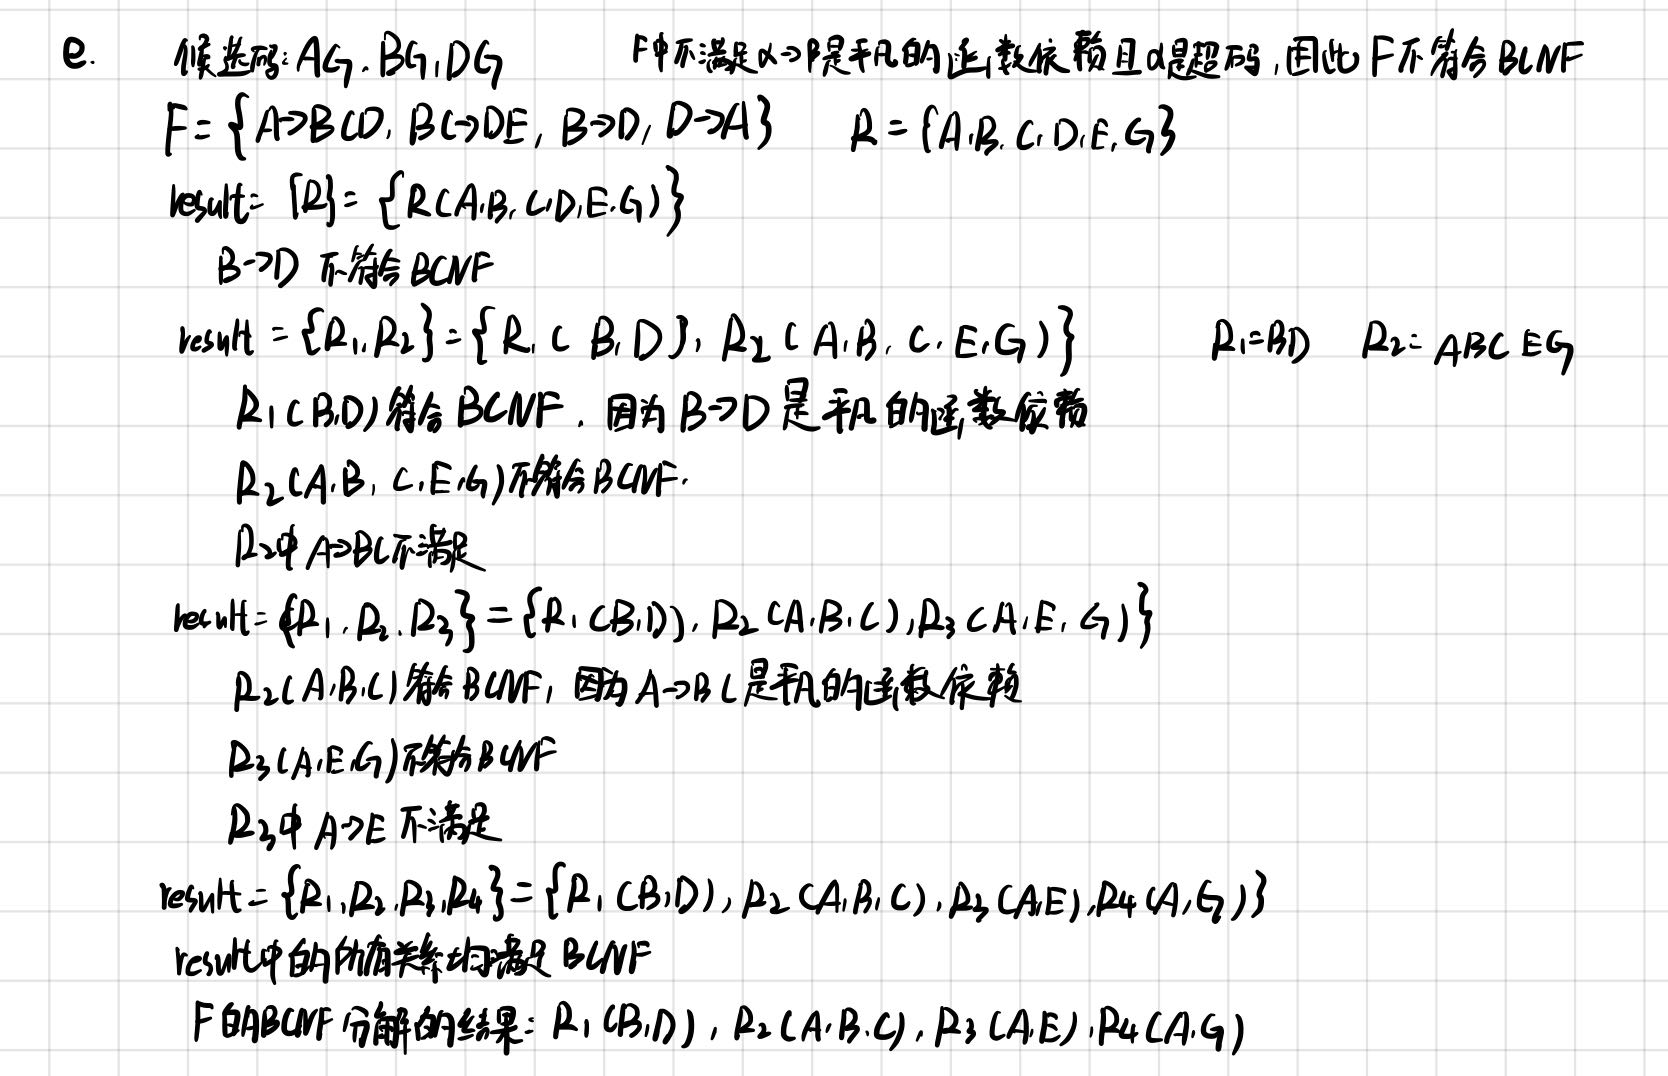 e. 候选码: AG, BG, DG F中不满足α→β是平凡的函数依赖且α是超码, 因此F不符合BCNF
F = {A→BCD, BC→DE, B→D, D→A} R = {A,B,C,D,E,G}
result = {R} = {R(A,B,C,D,E,G)}
B→D 不符合BCNF
result = {R1,R2} = {R1(B,D), R2(A,B,C,E,G)} R1=BD R2=ABCEG
R1(B,D)符合BCNF, 因为B→D是平凡的函数依赖
R2(A,B,C,E,G)不符合BCNF.
R2中A→BC不满足
result = {R1,R2,R3} = {R1(B,D), R2(A,B,C), R3(A,E,G)}
R2(A,B,C)符合BCNF, 因为A→BC是平凡的函数依赖
R3(A,E,G)不符合BCNF
R3中A→E不满足
result = {R1,R2,R3,R4} = {R1(B,D), R2(A,B,C), R3(A,E), R4(A,G)}
result中的所有关系均满足BCNF
F的BCNF分解的结果: R1(B,D), R2(A,B,C), R3(A,E), R4(A,G)